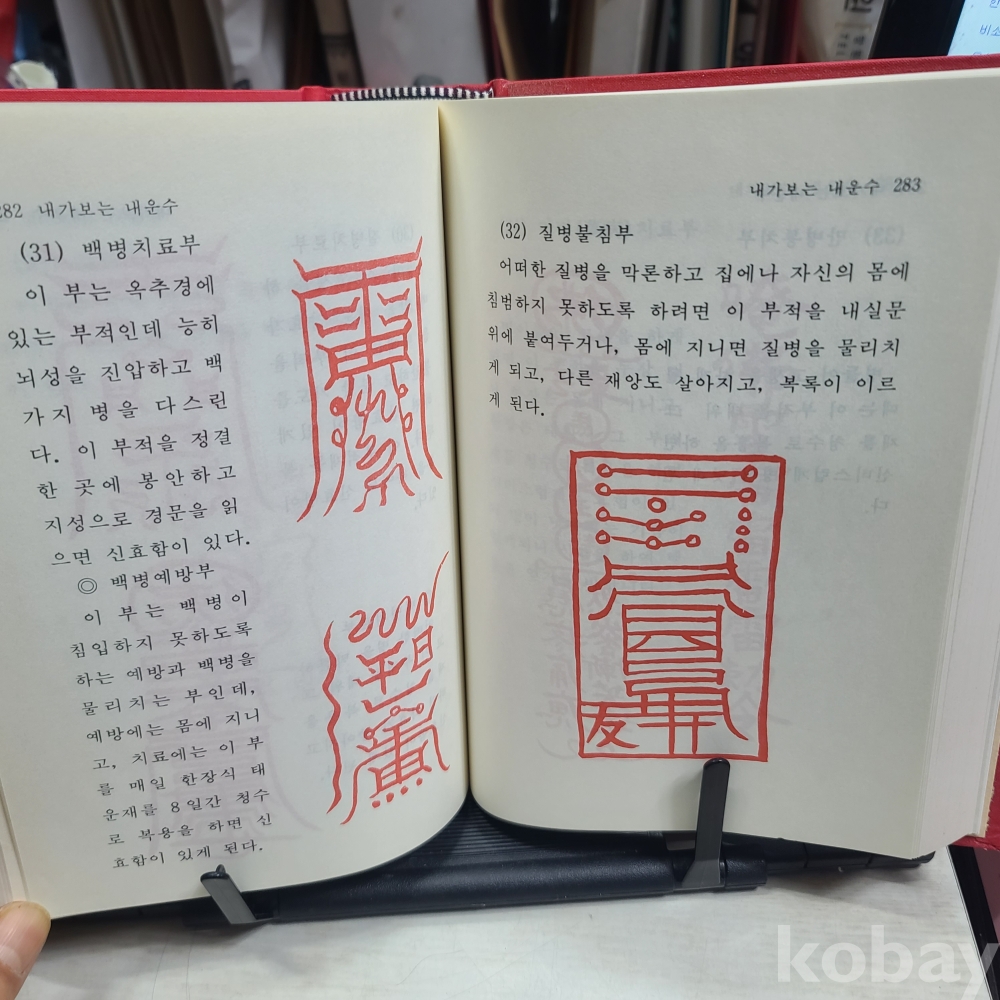 282 내가보는 내운수
(31) 백병치료부
이 부는 옥추경에
있는 부적인데 능히
뇌성을 진압하고 백
가지 병을 다스린
다. 이 부적을 정결
한 곳에 봉안하고
지성으로 경문을 읽
으면 신효함이 있다.
◎ 백병예방부
이 부는 백병이
침입하지 못하도록
하는 예방과 백병을
물리치는 부인데,
예방에는 몸에 지니
고, 치료에는 이 부
를 매일 한장식 태
운재를 8일간 청수
로 복용을 하면 신
효함이 있게 된다.
내가보는 내운수 283
(32) 질병불침부
어떠한 질병을 막론하고 집에나 자신의 몸에
침범하지 못하도록 하려면 이 부적을 내실문
위에 붙여두거나, 몸에 지니면 질병을 물리치
게 되고, 다른 재앙도 살아지고, 복록이 이르
게 된다.
友
kobay